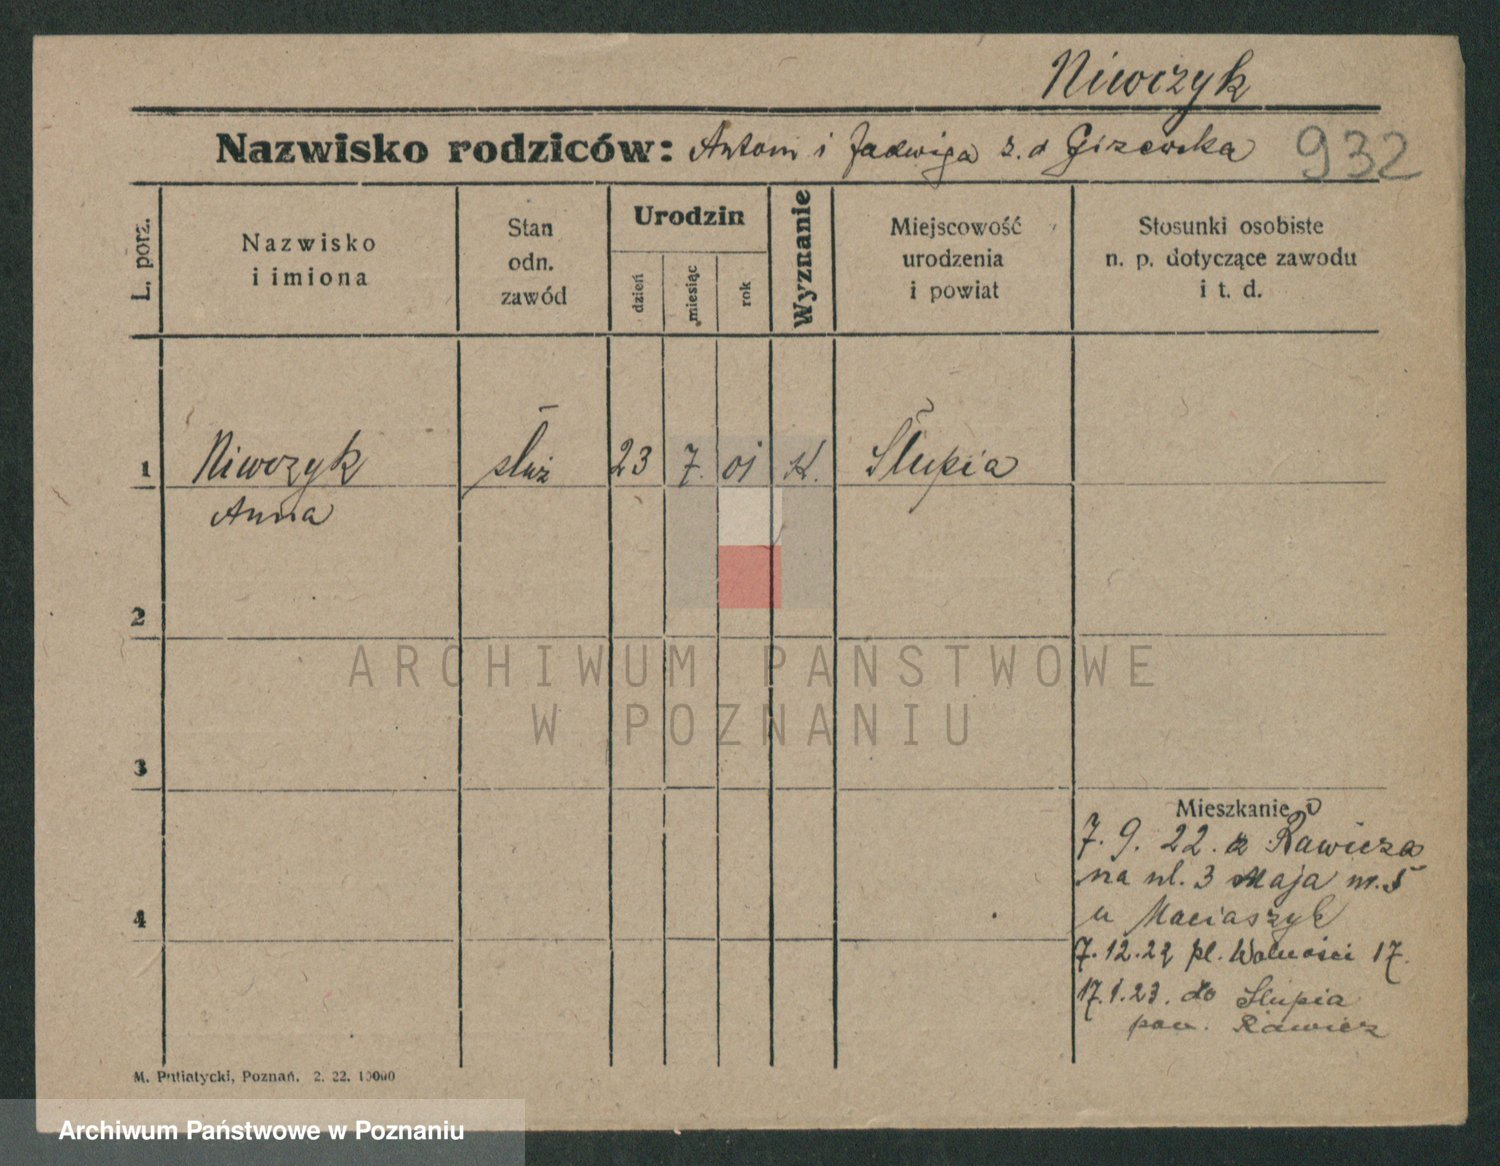 Niewczyk
Nazwisko rodziców: Antoni i Jadwiga z.d Gizewska 932
L. porz.
Nazwisko
i imiona
Stan
odn.
zawód
Urodzin
dzień
miesiąc
rok
Wyznanie
Miejscowość
urodzenia
i powiat
Stosunki osobiste
n. p. dotyczące zawodu
i t. d.
1 Niewczyk służ 23 7. 01 K. Słupia
Anna
2
3
4
Mieszkanie
7. 9. 22. z Rawicza
na ul. 3 Maja nr. 5
u Maciaszyk
7.12.22 pl. Wolności 17.
17.1.23. do Słupia
pow. Rawicz
M. Putiatycki, Poznań. 2. 22. 10000
ARCHIWUM PAŃSTWOWE
W POZNANIU
Archiwum Państwowe w Poznaniu